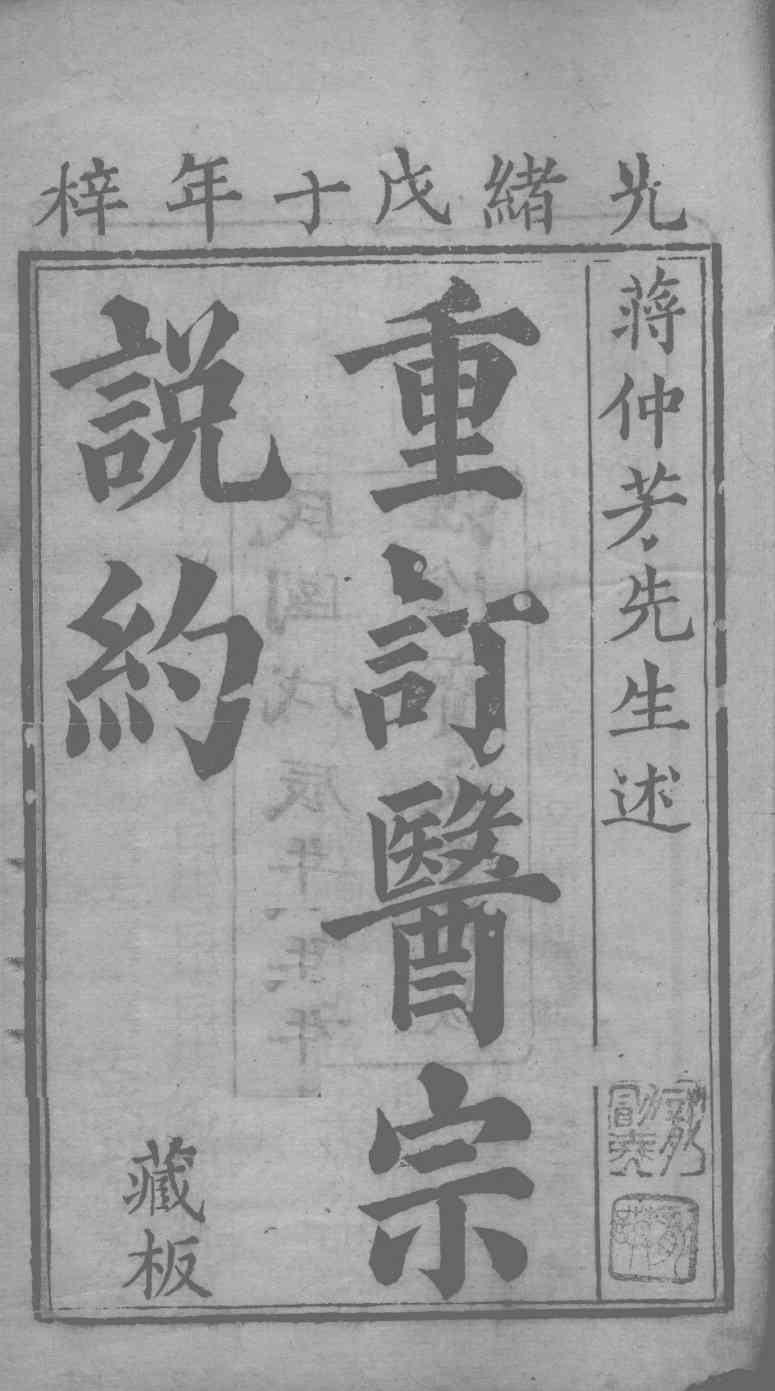 光緒戊十年梓
蔣仲芳先生述
重訂醫宗
説約
藏板